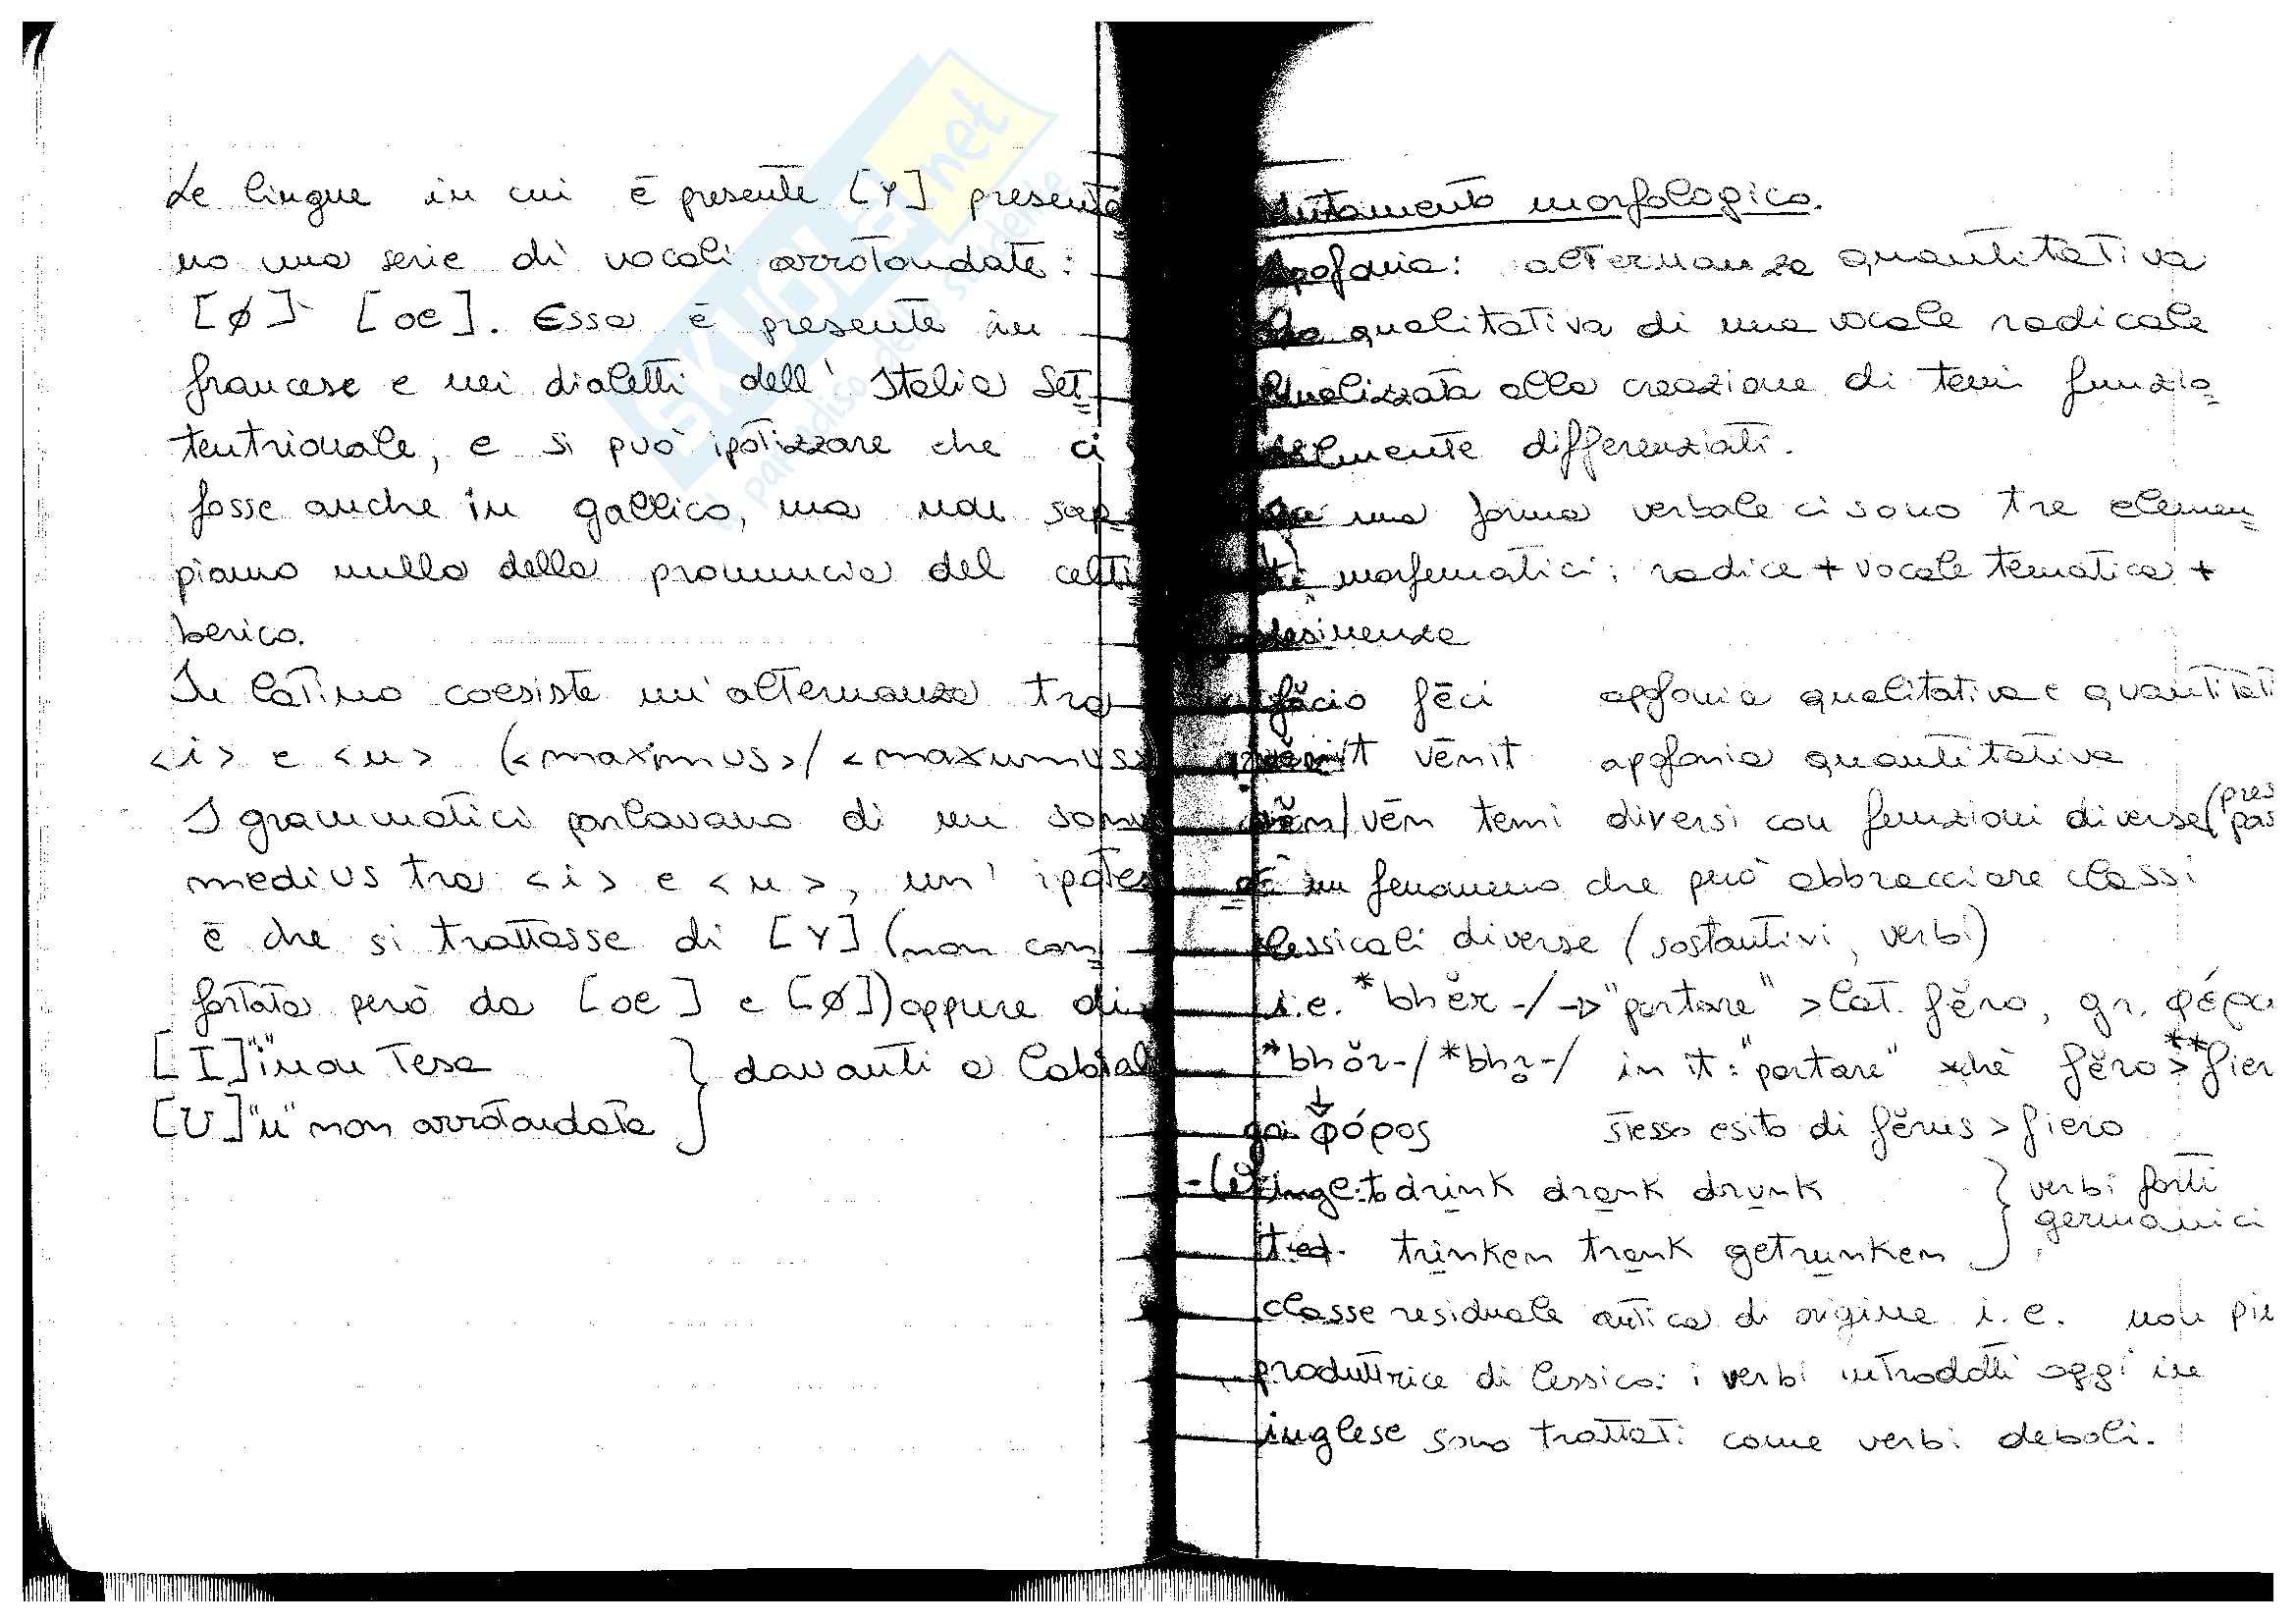 Le lingue in cui è presente [Y] presenta
no una serie di vocali arrotondate:
[ø] [oe]. Essa è presente in
francese e nei dialetti dell' Italia Set
tentrionale, e si può ipotizzare che ci
fosse anche in gallico, ma non sap
piamo nulla della pronuncia del celti
berico.
In latino coesiste un'alternanza tra
<i> e <u> (<maximus>/<maxumus>
I grammatici parlavano di un sonu
medius tra <i> e <u>, un' ipotes
è che si trattasse di [Y] (non con
fortata però da [oe] e [ø]) oppure di
[I] "i" non tesa } davanti a labial
[U] "u" non arrotondata
Mutamento morfologico.
Apofonia: alternanza quantitativa
qualitativa di una vocale radicale
finalizzata alla creazione di temi funzio
nalmente differenziati.
una forma verbale ci sono tre elemen
ti morfematici: radice + vocale tematica +
desinenza
făcio fēci apofonia qualitativa e quantitati
vĕnit vēnit apofonia quantitativa
vĕn/vēn temi diversi con funzioni diverse (pres
pas
è un fenomeno che può abbracciare classi
lessicali diverse (sostantivi, verbi)
i.e. *bhĕr-/ -> "portare" > lat. fĕro, gr. φέρω
*bhŏr-/*bhr̥-/ in it: "portare" xchè fĕro > **fier
↓
gr. φόρος stesso esito di fĕrus > fiero
ingl. to drink drank drunk } verbi forti
germanici
ted. trinken trank getrunken
classe residuale antica di origine i.e. non più
produttrice di lessico: i verbi introdotti oggi in
inglese sono trattati come verbi deboli.
SKUOLA.net
il paradiso dello studente